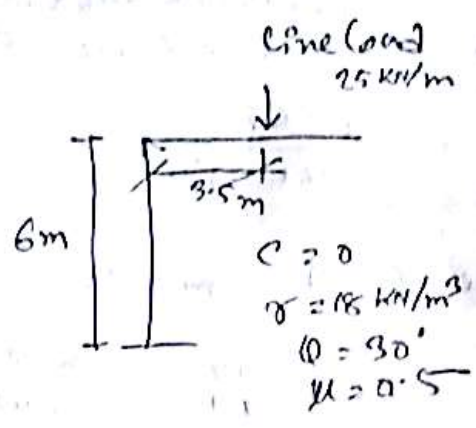 Line Load
25 KN/m
3.5m
6m
C = 0
γ = 18 KN/m³
φ = 30°
μ = 0.5